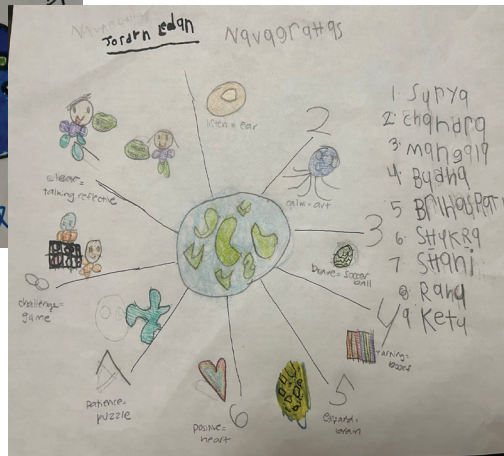 Jordan Edan
Navagrahas
1. Surya
2. Chandra
3. Mangala
4. Budha
5 Brihaspati
6. Shukra
7 Shani
8 Rahu
9 Ketu
listen = ear
2
calm = art
3
brave = soccer
ball
4
5
expand =
brain
6
positive =
heart
patience =
puzzle
challenge =
game
clear =
talking reflective